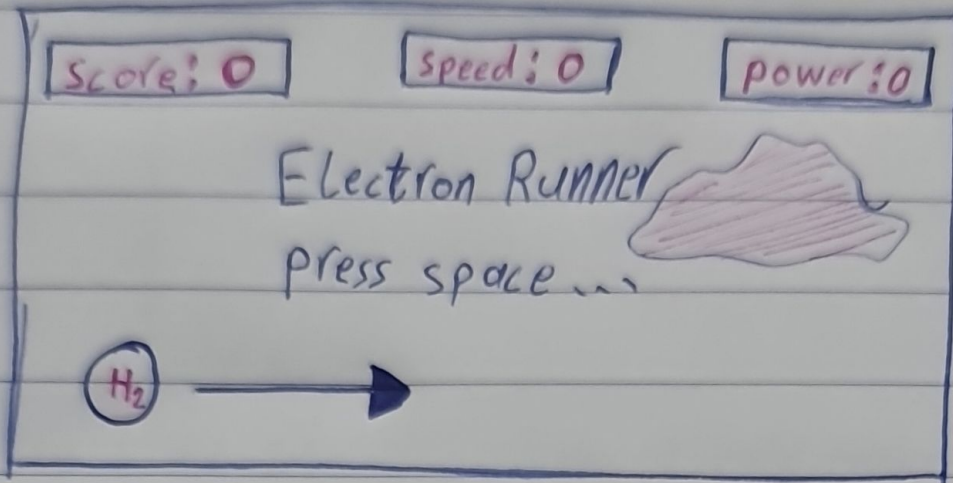 score: 0 speed: 0 power: 0
Electron Runner
press space...
H₂